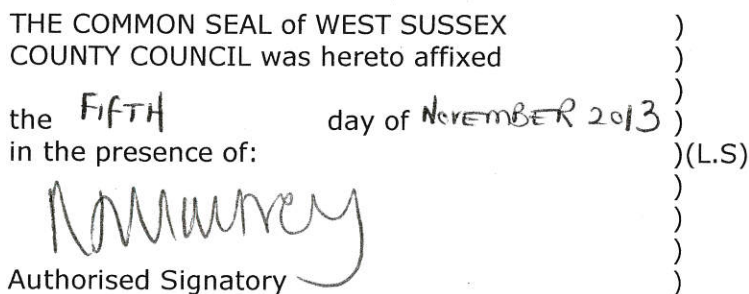 THE COMMON SEAL of WEST SUSSEX )
COUNTY COUNCIL was hereto affixed )
)
the FIFTH day of NOVEMBER 2013 )
in the presence of: )(L.S)
)
)
)
Authorised Signatory )